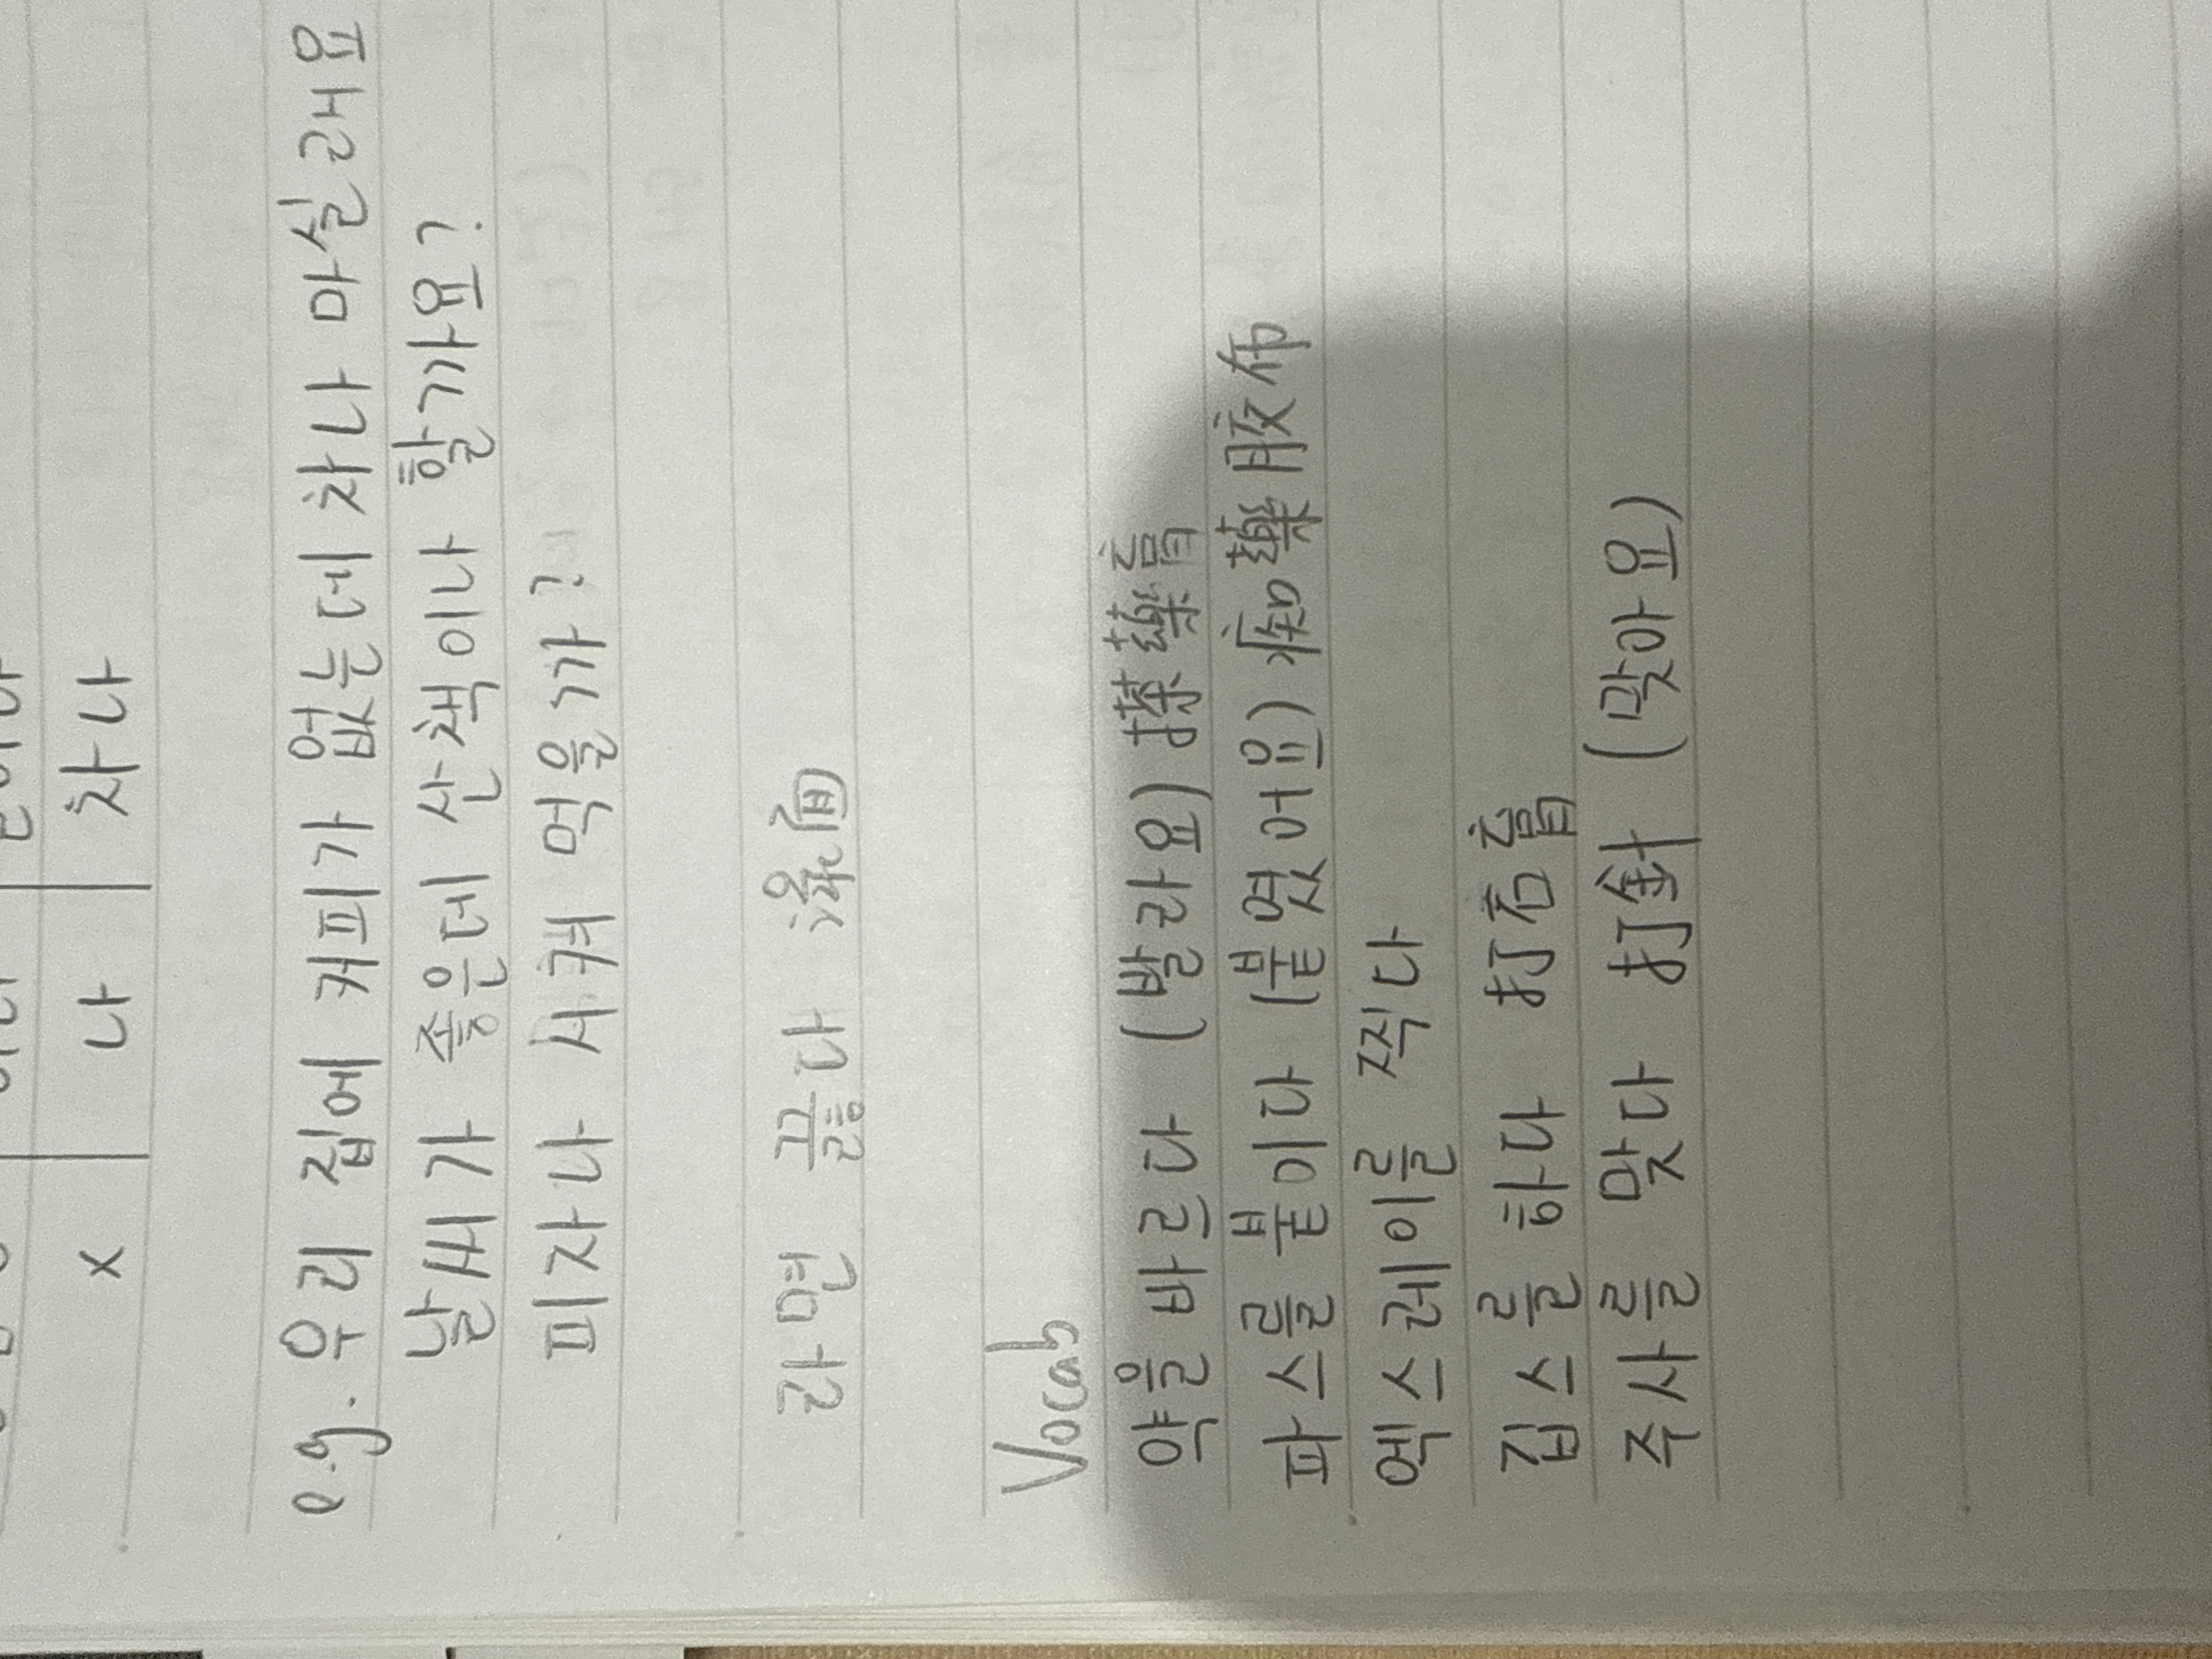 x 나 차나
e.g. 우리 집에 커피가 없는데 차나 마실래요
날씨가 좋은데 산책이나 할가요?
피자나 시켜 먹을가?
라면 끓다
Vocab
약을 바르다 (발라요) 搽藥膏
파스를 붙이다 (붙였어요) 痴藥膠布
엑스레이를 찍다
깁스를 하다 打石膏
주사를 맞다 打針 (맞아요)